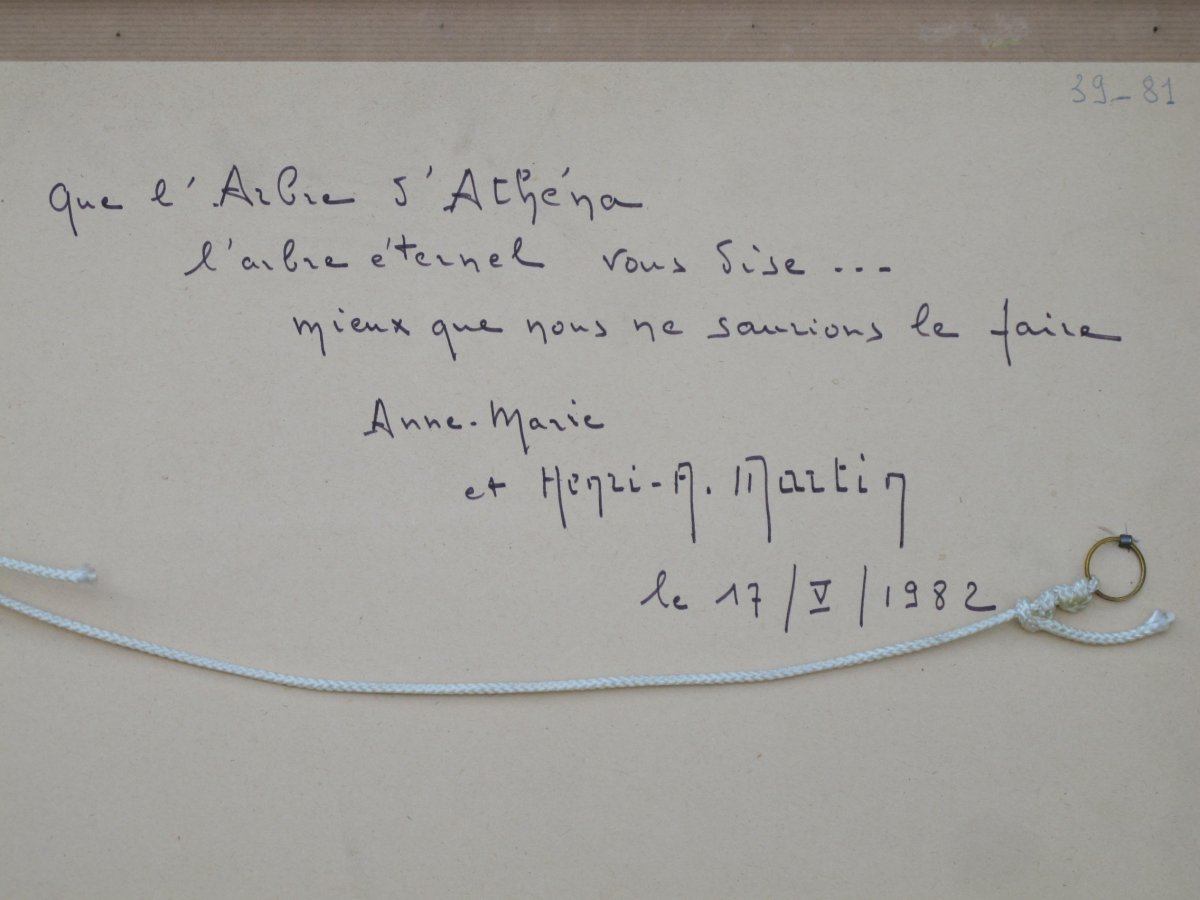 39-81
Que l'Arbre d'Athéna
l'arbre éternel vous dise ...
mieux que nous ne saurions le faire
Anne-Marie
et Henri-A. Martin
le 17/V/1982